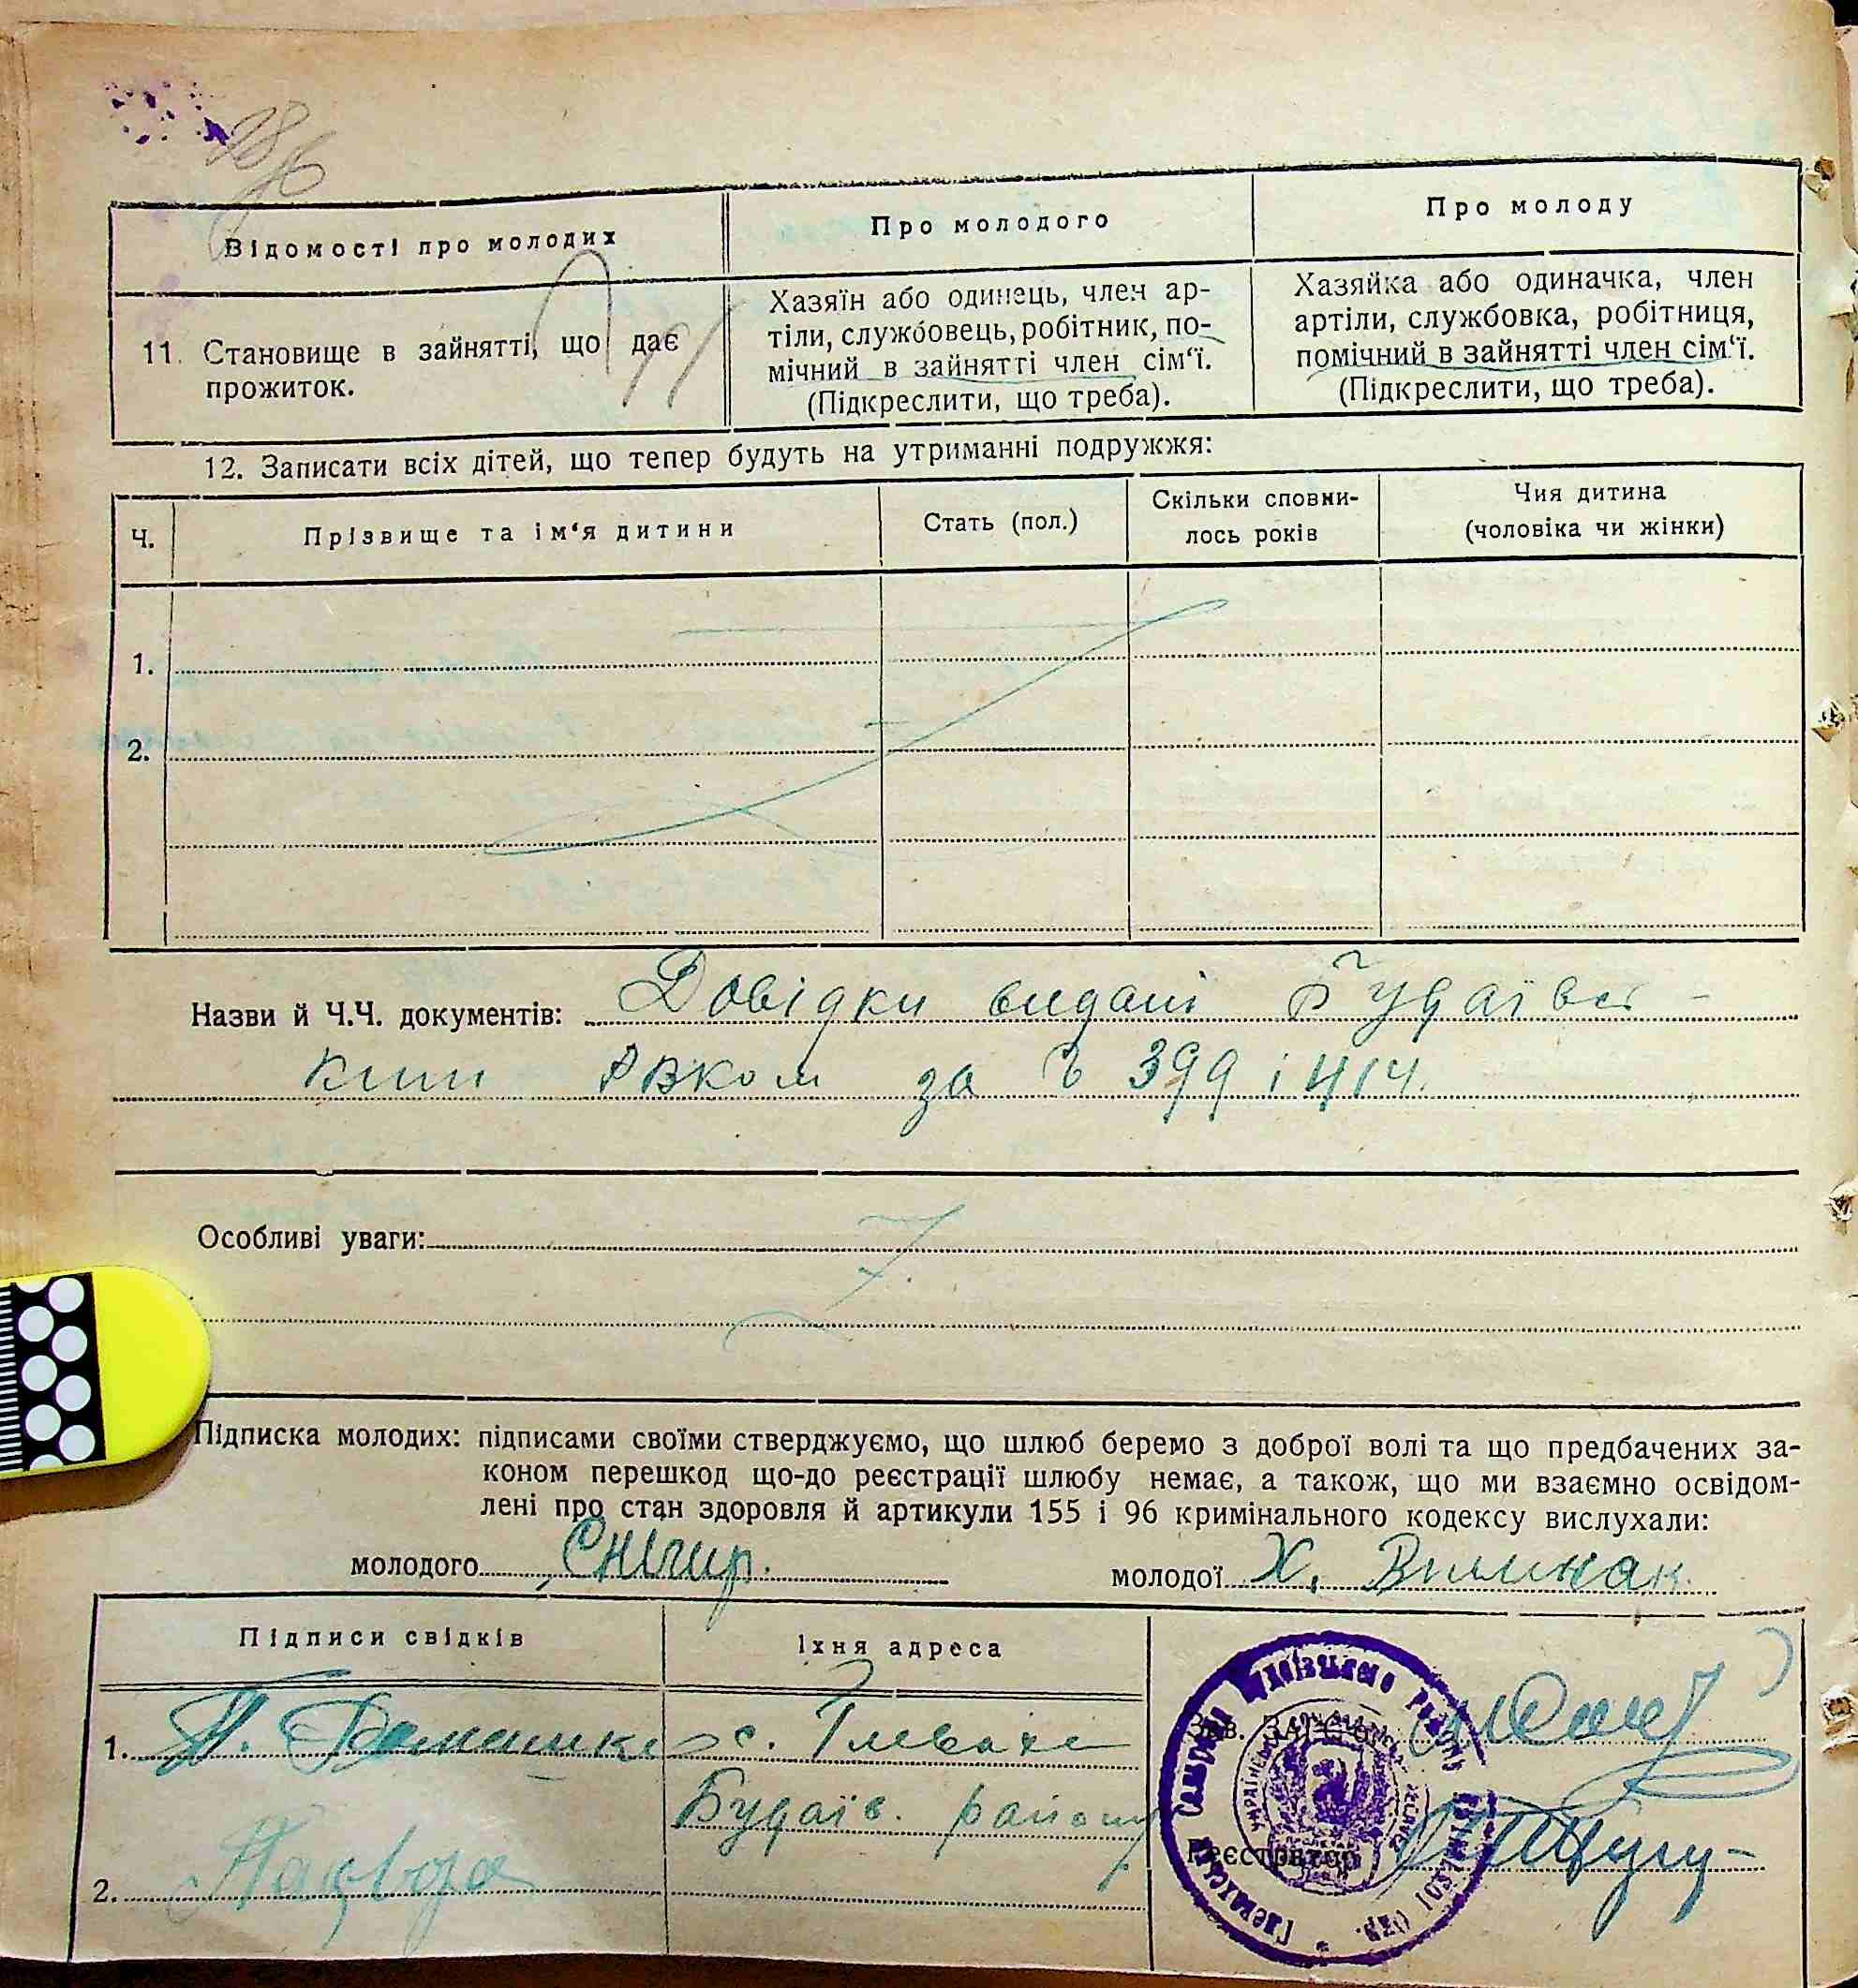 Відомості про молодих
Про молодого
Про молоду
11. Становище в зайнятті, що дає
прожиток.
Хазяїн або одинець, член ар-
тіли, службовець, робітник, по-
мічний в зайнятті член сім‘ї.
(Підкреслити, що треба).
Хазяйка або одиначка, член
артіли, службовка, робітниця,
помічний в зайнятті член сім‘ї.
(Підкреслити, що треба).
12. Записати всіх дітей, що тепер будуть на утриманні подружжя:
Ч.
Прізвище та ім‘я дитини
Стать (пол.)
Скільки сповни-
лось років
Чия дитина
(чоловіка чи жінки)
1.
2.
Назви й Ч.Ч. документів: Довідки видані Будаївсь-
ким РВКом за Ч 399 і 414.
Особливі уваги:
Підписка молодих: підписами своїми стверджуємо, що шлюб беремо з доброї волі та що предбачених за-
коном перешкод що-до реєстрації шлюбу немає, а також, що ми взаємно освідом-
лені про стан здоровля й артикули 155 і 96 кримінального кодексу вислухали:
молодого Снігир.
молодої Х.
Підписи свідків
Їхня адреса
1.
с. Глеваха
Будаїв. району
2.
Зав. ЗАГС'ом
Реєстратор